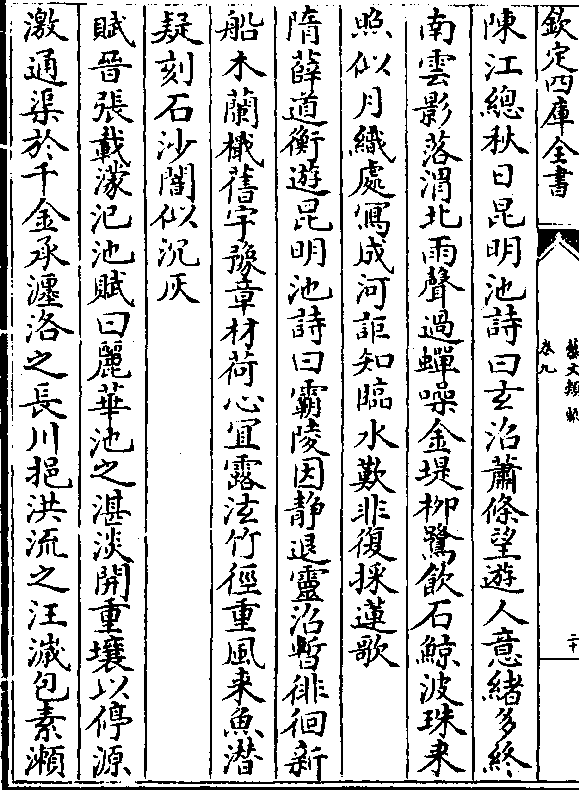 欽定四庫全書
藝文類聚
卷九
二十
陳江總秋日昆明池詩曰玄沼蕭條望遊人意緒多終
南雲影落渭北雨聲過蟬噪金堤柳鷺飲石鯨波珠来
照似月織處寫成河詎知臨水歎非復採蓮歌
隋薛道衡遊昆明池詩曰霸陵因静退靈沼暫徘徊新
船木蘭檝舊宇豫章材荷心宜露泫竹徑重風来魚潜
疑刻石沙闇似沉灰
賦晉張載濛汜池賦曰麗華池之湛淡開重壤以停源
激通渠於千金承瀍洛之長川挹洪流之汪濊包素瀨